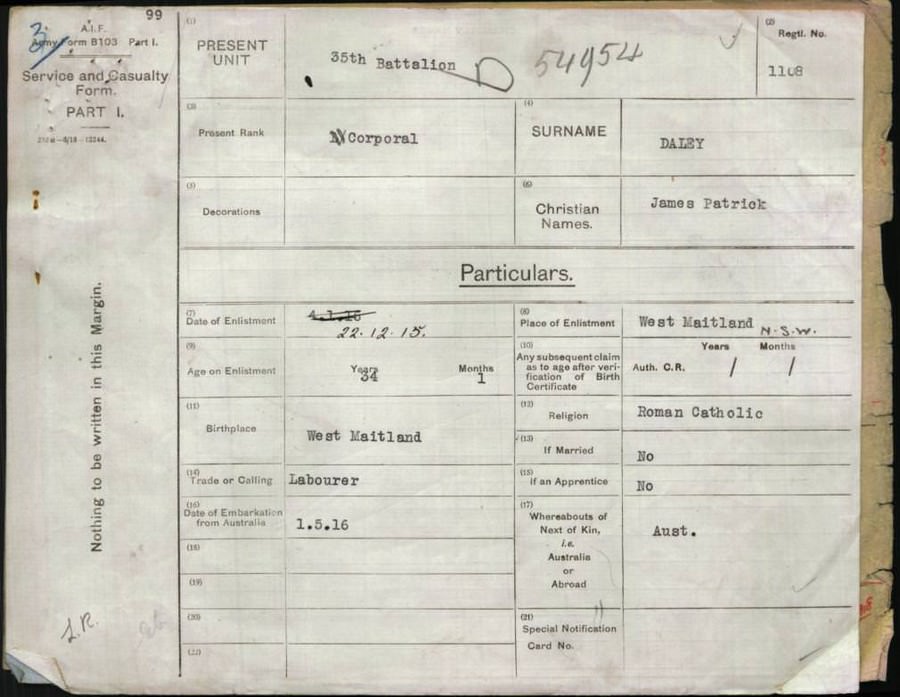 99
A.I.F.
Army Form B103 Part I.
Service and Casualty
Form.
PART I.
Nothing to be written in this Margin.
(1)
PRESENT
UNIT
35th Battalion
D
54954
(2)
Regtl. No.
1108
(3)
Present Rank
Corporal
(4)
SURNAME
DALEY
(5)
Decorations
(6)
Christian
Names.
James Patrick
Particulars.
(7)
Date of Enlistment
4.1.16
22.12.15.
(8)
Place of Enlistment
West Maitland N.S.W.
(9)
Age on Enlistment
Years
34
Months
1
(10)
Any subsequent claim
as to age after veri-
fication of Birth
Certificate
Auth. C.R.
Years
/
Months
/
(11)
Birthplace
West Maitland
(12)
Religion
Roman Catholic
(13)
If Married
No
(14)
Trade or Calling
Labourer
(15)
If an Apprentice
No
(16)
Date of Embarkation
from Australia
1.5.16
(17)
Whereabouts of
Next of Kin,
i.e.
Australia
or
Abroad
Aust.
(18)
(19)
(20)
(21)
Special Notification
Card No.
(22)